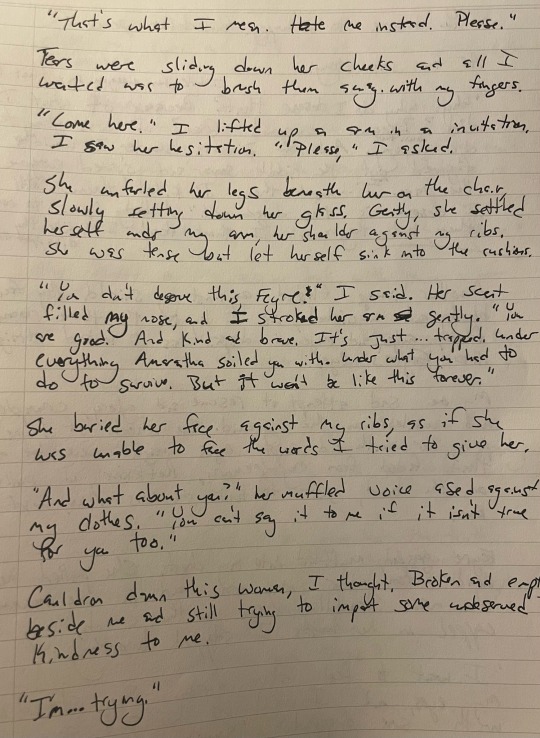 "That's what I mean. Hate me instead. Please."
Tears were sliding down her cheeks and all I
wanted was to brush them away with my fingers.
"Come here." I lifted up a arm in a invitation.
I saw her hesitation. "Please," I asked.
She unfurled her legs beneath her on the chair,
slowly setting down her glass. Gently, she settled
herself under my arm, her shoulder against my ribs.
She was tense but let herself sink into the cushions.
"You don't deserve this, Feyre." I said. Her scent
filled my nose, and I stroked her arm gently. "You
are good. And kind and brave. It's just... trapped. Under
everything Amarantha soiled you with. Under what you had to
do to survive. But it won't be like this forever."
She buried her face against my ribs, as if she
was unable to face the words I tried to give her.
"And what about you?" her muffled voice ased against
my clothes. "You can't say it to me if it isn't true
for you too."
Cauldron damn this woman, I thought. Broken and empt
beside me and still trying to impart some undeserved
kindness to me.
"I'm... trying."